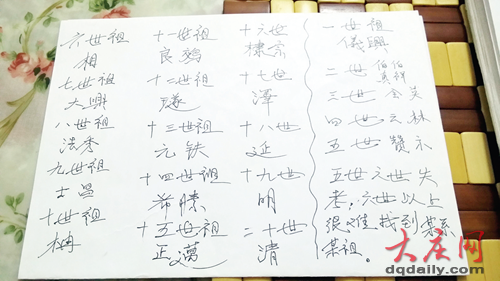 六世祖
相
七世祖
大興
八世祖
法秀
九世祖
士昌
十世祖
十一世祖
良
十二世祖
十三世祖
元铁
十四世祖
希勝
十五世祖
正
十六世
棣宗
十七世
澤
十八世
延
十九世
明
二十世
清
一世祖
儀興
二世 伯真 伯祥
三世 全英
四世 云林
五世 贊
五世六世失
考，六世以上
很难找到某系
某祖。
大庆网
dqdaily.com